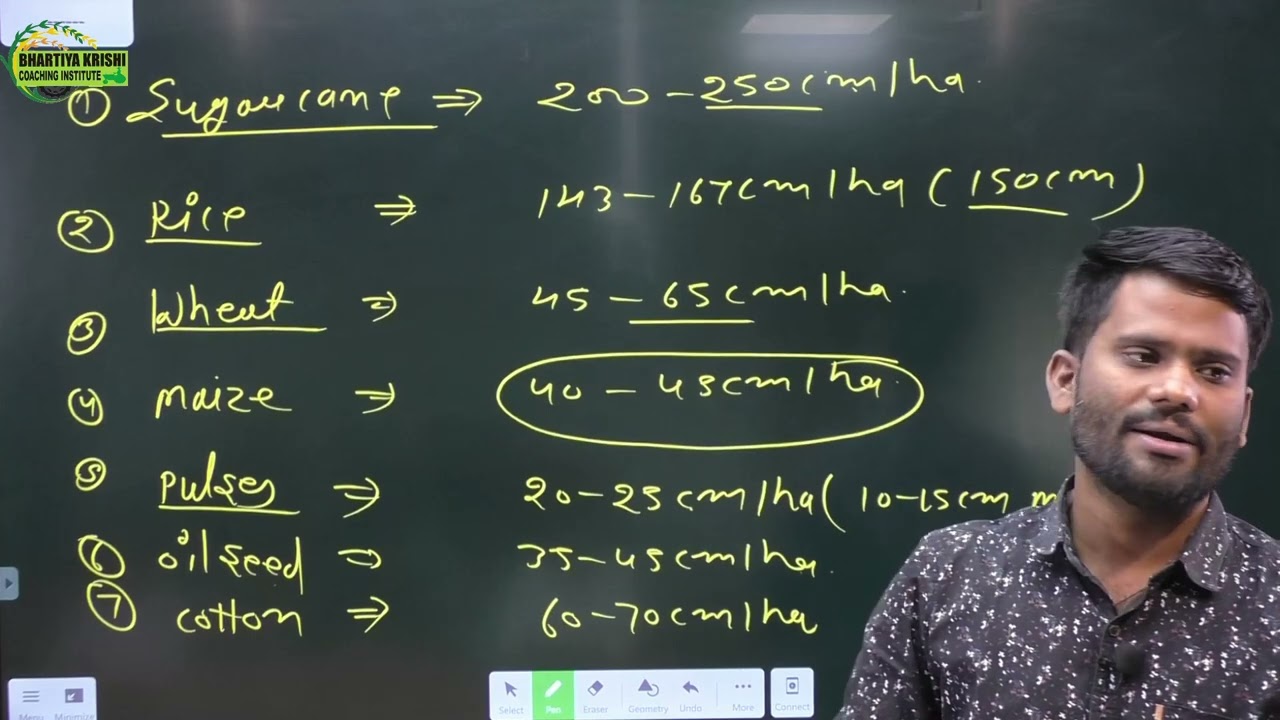 BHARTIYA KRISHI
COACHING INSTITUTE
① Sugarcane ⇒ 200 - 250cm/ha.
② Rice ⇒ 143 - 167cm/ha (150cm)
③ Wheat ⇒ 45 - 65cm/ha.
④ maize ⇒ 40 - 45cm/ha.
⑤ pulses ⇒ 20-25cm/ha( 10-15cm m
⑥ oilseed ⇒ 35-45cm/ha.
⑦ cotton ⇒ 60-70cm/ha
Menu Minimize Select Pen Eraser Geometry Undo More Connect